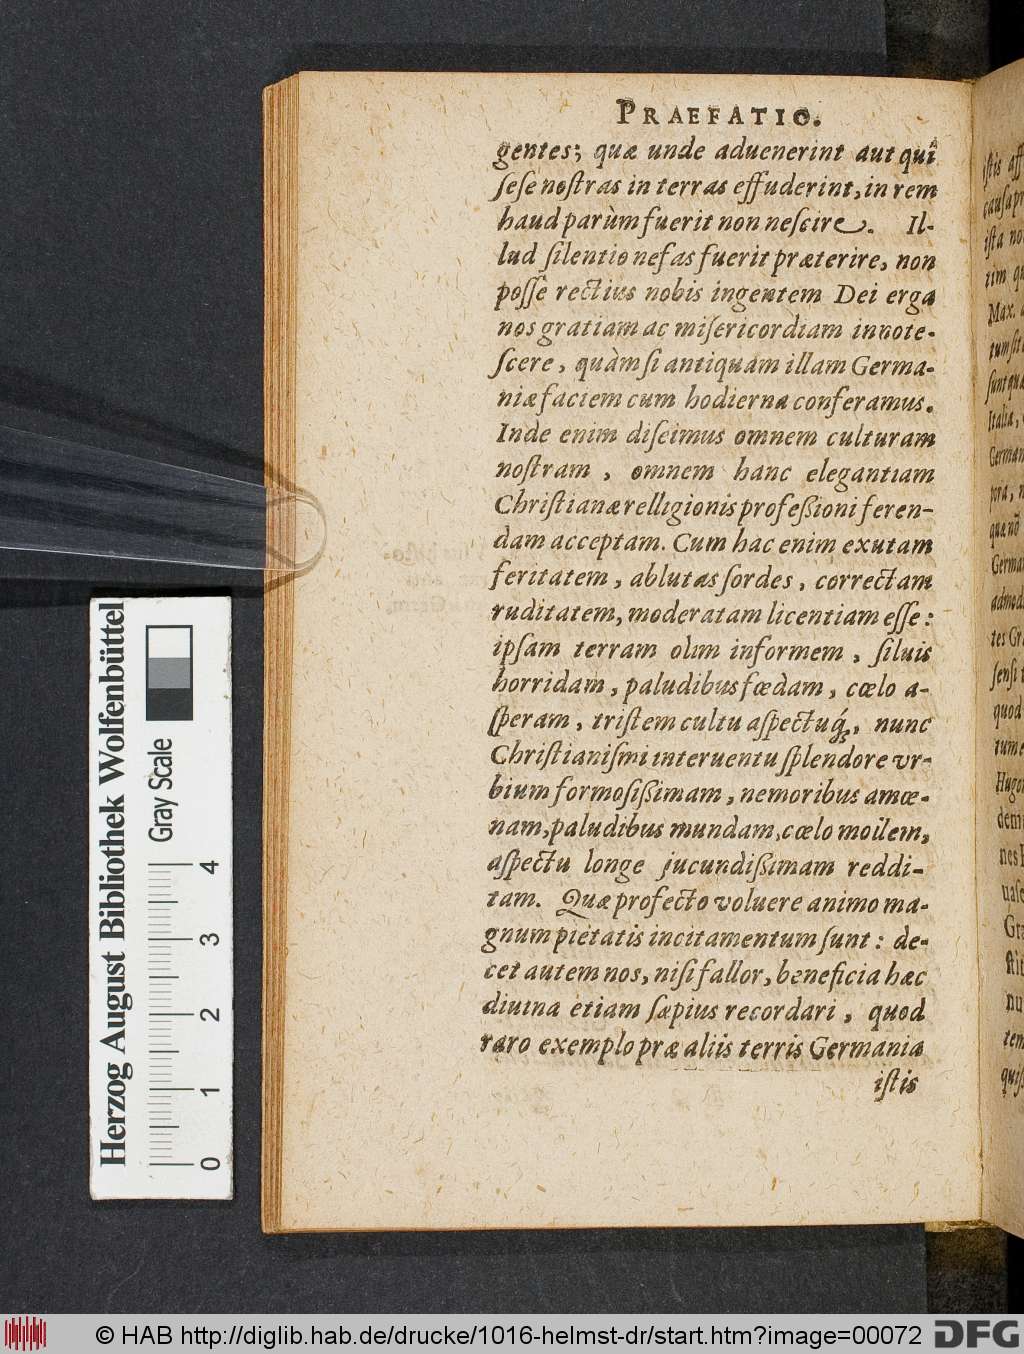 PRAEFATIO.
gentes; quæ unde aduenerint aut quî
ſeſe noſtras in terras effuderint, in rem
haud parùm fuerit non neſcire. Il-
lud ſilentio nefas fuerit præterire, non
poſſe rectius nobis ingentem Dei erga
nos gratiam ac miſericordiam innote-
ſcere, quàm ſi antiquam illam Germa-
niæ faciem cum hodierna conferamus.
Inde enim diſcimus omnem culturam
noſtram, omnem hanc elegantiam
Chriſtianæ relligionis profeßioni feren-
dam acceptam. Cum hac enim exutam
feritatem, ablutas ſordes, correctam
ruditatem, moderatam licentiam eſſe:
ipſam terram olim informem, ſiluis
horridam, paludibus fœdam, cœlo a-
ſperam, triſtem cultu aſpectuq́, nunc
Chriſtianiſmi interuentu ſplendore vr-
bium formoſißimam, nemoribus amœ-
nam, paludibus mundam, cœlo mollem,
aſpectu longe jucundißimam reddi-
tam. Quæ profecto voluere animo ma-
gnum pietatis incitamentum ſunt: de-
cet autem nos, niſi fallor, beneficia hæc
diuina etiam ſæpius recordari, quod
raro exemplo præ aliis terris Germania
iſtis
iſtis aff
cauſa pr
iſta no
tim q
Max.
tum ſit
ſunt qua
Italia,
German
pora, n
quæ nō
Germa
admod
tes Gr
ſenſi
quod
tum e
Hugo
deni
nes
uaſe
Gra
ſtit
nu
tem
quiſ
Herzog August Bibliothek Wolfenbüttel
Gray Scale
0 1 2 3 4
© HAB http://diglib.hab.de/drucke/1016-helmst-dr/start.htm?image=00072
DFG